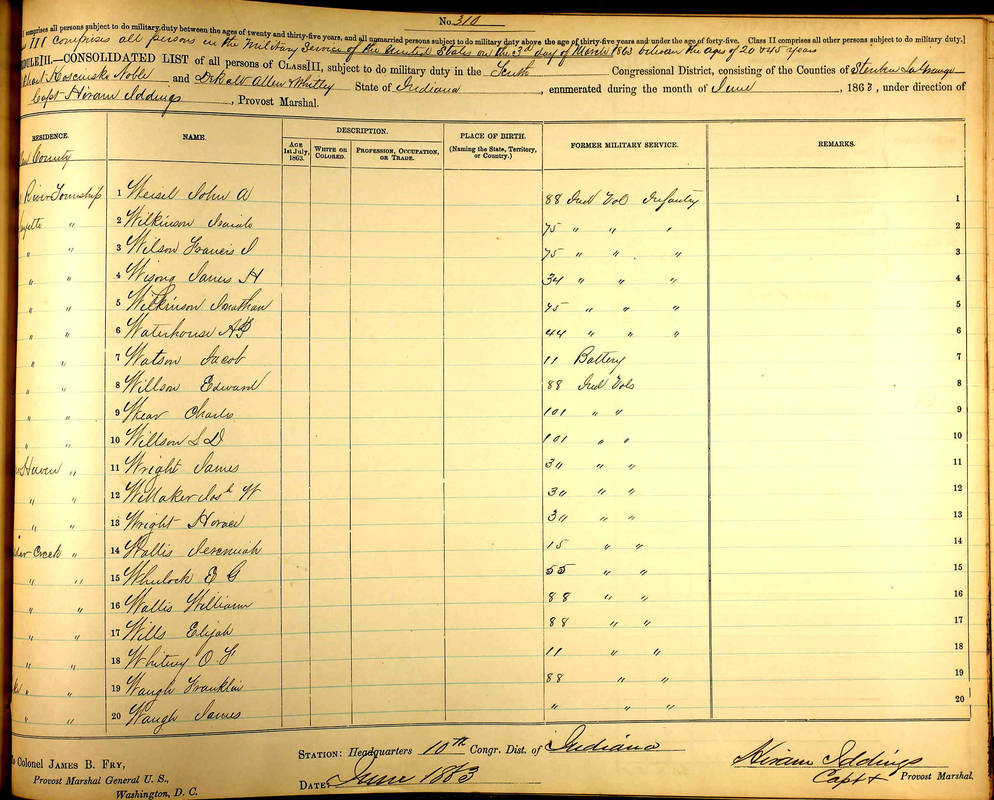 No. 310
comprises all persons subject to do military duty between the ages of twenty and thirty-five years, and all unmarried persons subject to do military duty above the age of thirty-five years and under the age of forty-five. Class II comprises all other persons subject to do military duty.]
III comprises all persons in the Military Service of the United States on the 3rd day of March 1863 between the ages of 20 & 45 years
DULE III.—CONSOLIDATED LIST of all persons of CLASS III, subject to do military duty in the Tenth Congressional District, consisting of the Counties of Steuben La Grange
Kosciusko Noble and DeKalb Allen & Whitley State of Indiana, enumerated during the month of June, 1863, under direction of
Capt Hiram Iddings, Provost Marshal.
RESIDENCE. NAME. DESCRIPTION. PLACE OF BIRTH. (Naming the State, Territory, or Country.) FORMER MILITARY SERVICE. REMARKS.
AGE 1st July, 1863. WHITE OR COLORED. PROFESSION, OCCUPATION, OR TRADE.
County
River Township 1 Weisel John A 88 Ind Vol Infantry 1
2 Wilkinson 75 " " " 2
" 3 Wilson Francis J 75 " " " 3
" " 4 Wisong James H 34 " " " 4
" " 5 Wilkinson Jonathan 75 " " " 5
" " 6 Waterhouse A B 44 " " " 6
" " 7 Watson Jacob 11 Battery 7
" " 8 Willson Edward 88 Ind Vols 8
" " 9 Wear Charles 101 " " 9
" " 10 Willson S D 101 " " 10
Haven " 11 Wright James 30 " " 11
" " 12 Wittaker Jos h W 30 " " 12
" " 13 Wright Horace 30 " " 13
Creek " 14 Wallis Jeremiah 15 " " 14
" " 15 Wheelock E G 55 " " 15
" " 16 Wallis William 88 " " 16
" " 17 Wills Elijah 88 " " 17
" " 18 Whitney O F 11 " " 18
" " 19 Waugh Franklin 88 " " 19
" " 20 Waugh James " " " 20
Colonel JAMES B. FRY,
Provost Marshal General U. S.,
Washington, D. C.
STATION: Headquarters 10th Congr. Dist. of Indiana
DATE: June 1863
Hiram Iddings
Capt & Provost Marshal.